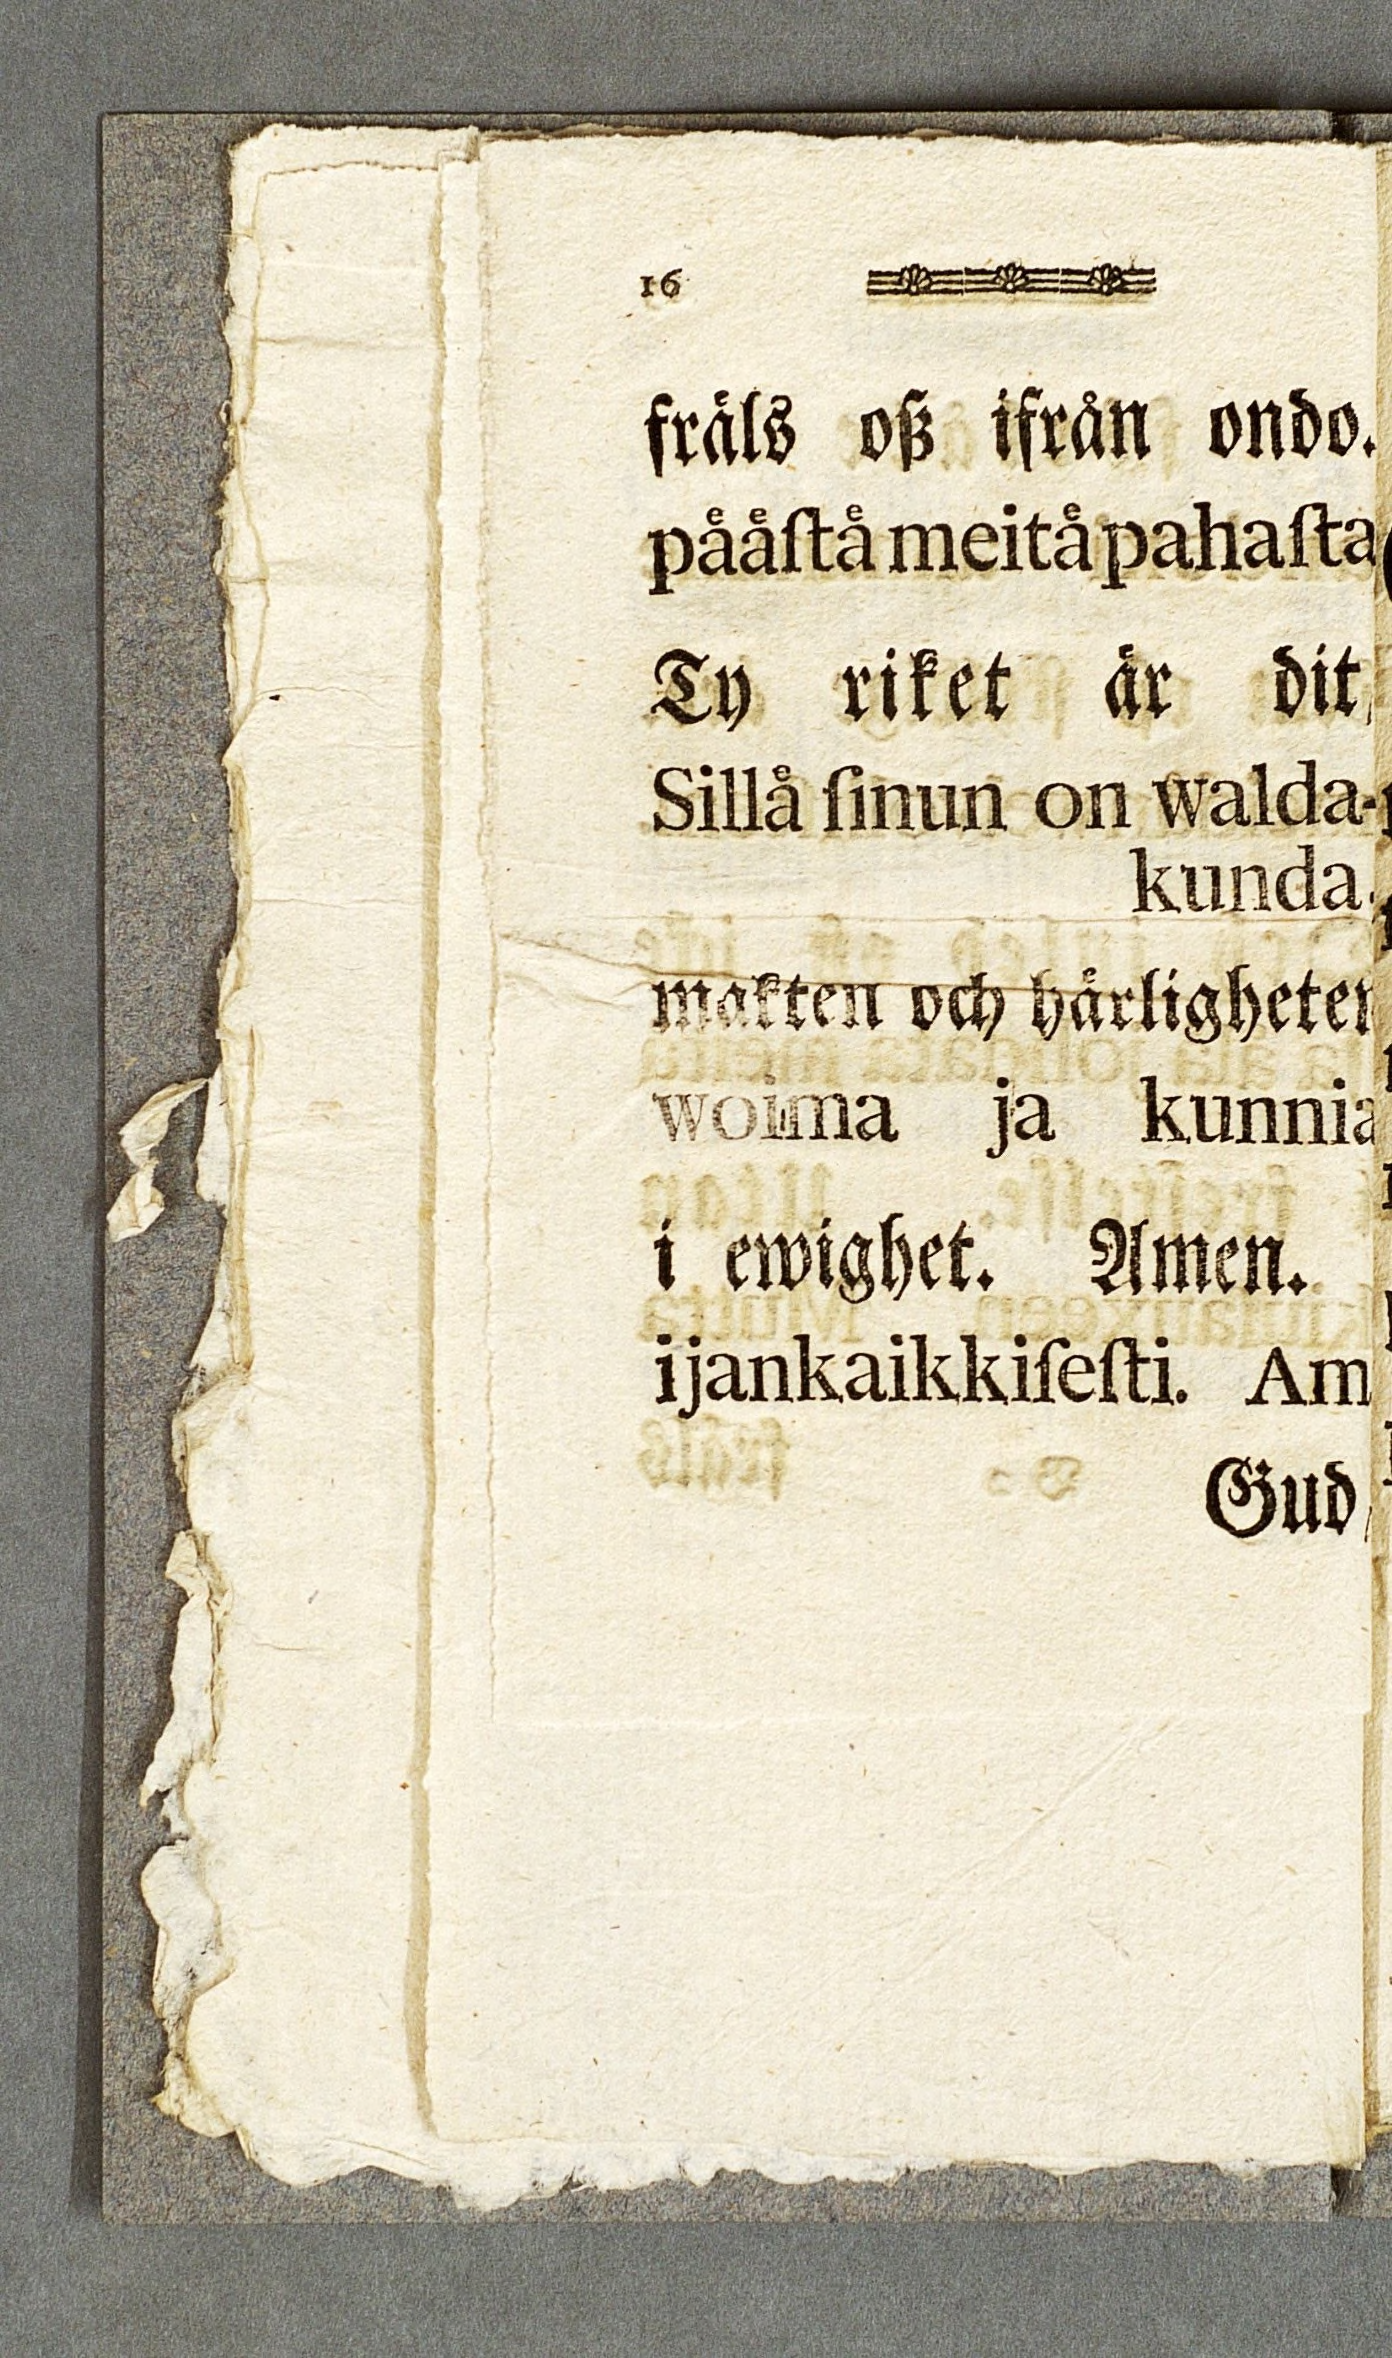 16
fråls oß ifrån ondo.
pååſtå meitå pahaſta
Ty riket år dit,
Sillå ſinun on walda-
kunda.
makten och hårligheten
woima ja kunnia
i ewighet. Amen.
ijankaikkiſeſti. Am
Gud,